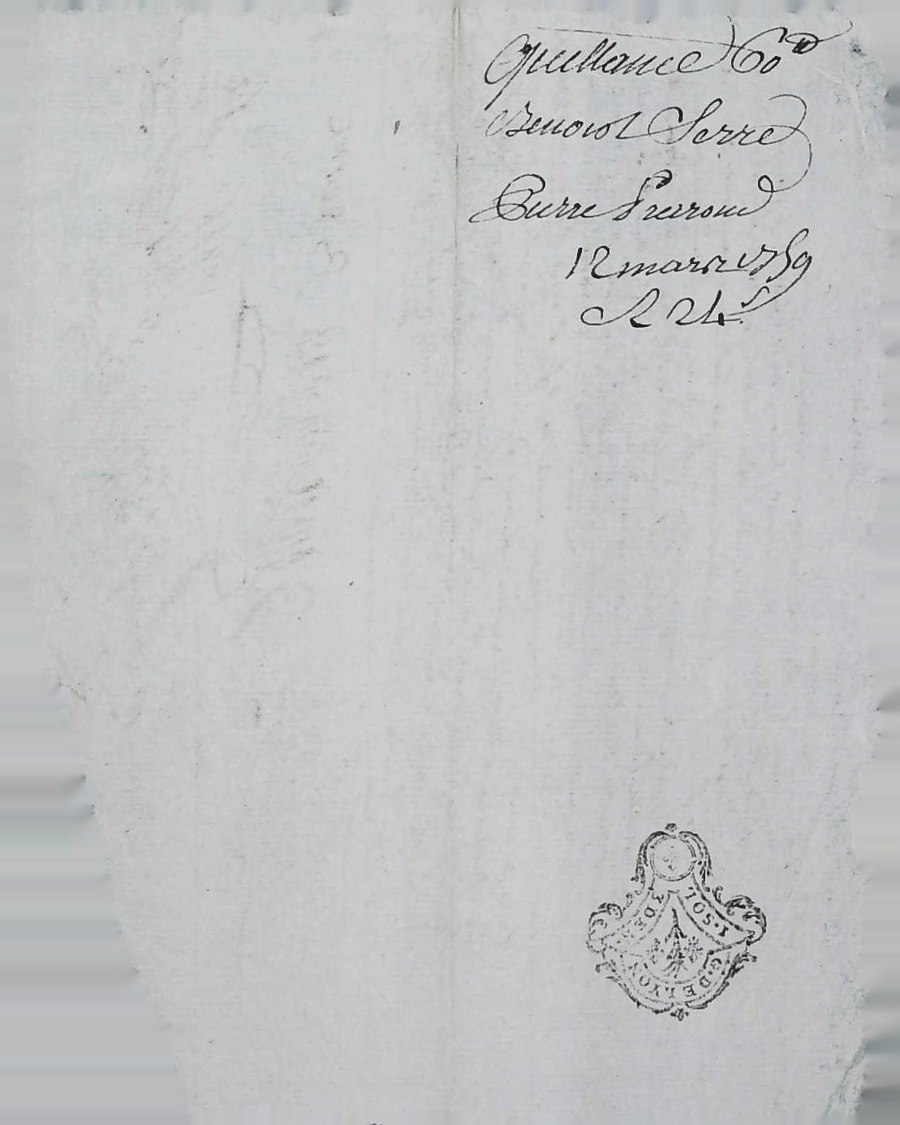 Quittance 60ᵗᵗ
Benoist Serre
Pierre
12 mars 1759
A 24ˢ
1·SOL
3 DEN
G·DE LYON